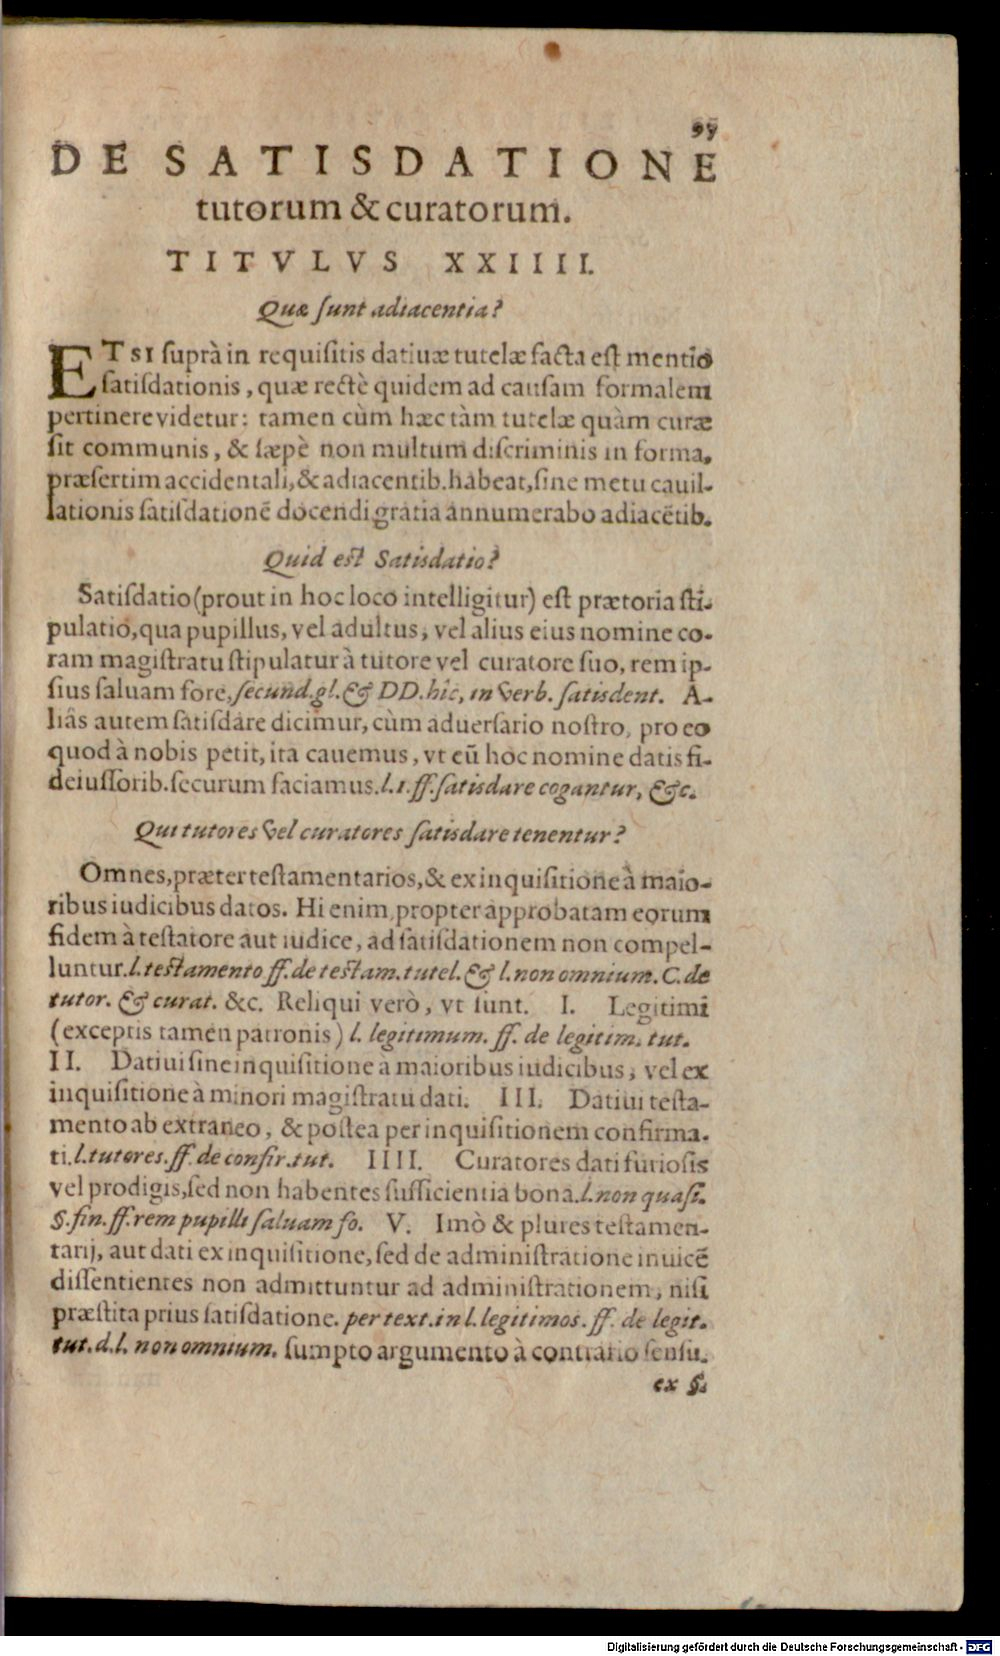 97
DE SATISDATIONE
tutorum & curatorum.
TITVLVS XXIIII.
Quæ ſunt adiacentia?
ETSI ſuprà in requiſitis datiuæ tutelæ facta eſt mentio
ſatiſdationis, quæ rectè quidem ad cauſam formalem
pertinere videtur: tamen cùm hæc tàm tutelæ quàm curæ
ſit communis, & ſæpè non multum diſcriminis in forma,
præſertim accidentali, & adiacentib. habeat, ſine metu cauil-
lationis ſatiſdationē docendi gratia annumerabo adiacētib.
Quid eſt Satisdatio?
Satiſdatio (prout in hoc loco intelligitur) eſt prætoria ſti-
pulatio, qua pupillus, vel adultus, vel alius eius nomine co-
ram magiſtratu ſtipulatur à tutore vel curatore ſuo, rem ip-
ſius ſaluam fore, ſecund. gl. & DD. hîc, in verb. ſatisdent. A-
liâs autem ſatiſdare dicimur, cùm aduerſario noſtro, pro eo
quod à nobis petit, ita cauemus, vt eū hoc nomine datis fi-
deiuſſorib. ſecurum faciamus. l. 1. ff. ſatisdare cogantur, &c.
Qui tutores vel curatores ſatisdare tenentur?
Omnes, præter teſtamentarios, & ex inquiſitione à maio-
ribus iudicibus datos. Hi enim propter approbatam eorum
fidem à teſtatore aut iudice, ad ſatiſdationem non compel-
luntur. l. teſtamento ff. de teſtam. tutel. & l. non omnium. C. de
tutor. & curat. &c. Reliqui verò, vt ſunt. I. Legitimi
(exceptis tamen patronis) l. legitimum. ff. de legitim. tut.
II. Datiui ſine inquiſitione a maioribus iudicibus, vel ex
inquiſitione à minori magiſtratu dati. III. Datiui teſta-
mento ab extraneo, & poſtea per inquiſitionem confirma-
ti. l. tutores. ff. de confir. tut. IIII. Curatores dati furioſis
vel prodigis, ſed non habentes ſufficientia bona. l. non quaſi.
§. fin. ff. rem pupilli ſaluam fo. V. Imò & plures teſtamen-
tarij, aut dati ex inquiſitione, ſed de adminiſtratione inuicē
diſſentientes non admittuntur ad adminiſtrationem, niſi
præſtita prius ſatiſdatione. per text. in l. legitimos. ff. de legit.
tut. d. l. non omnium. ſumpto argumento à contrario ſenſu.
ex §.
Digitalisierung gefördert durch die Deutsche Forschungsgemeinschaft - DFG